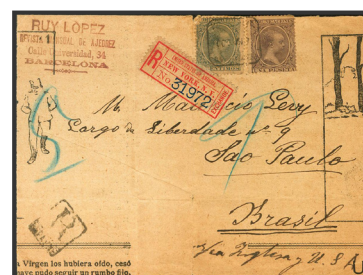 RUY LÓPEZ
REVISTA MENSUAL DE AJEDREZ
Calle Universidad, 34
BARCELONA
NEW YORK, N.Y.
R
No. 31972
UNA PESETA
M. Mauricio Levy
Largo da Liberdade nº 9
Sao Paulo
Brasil
Via Inglesa y U.S.A
R
a Virgen los hubiera oído, cesó
nave pudo seguir un rumbo fijo.